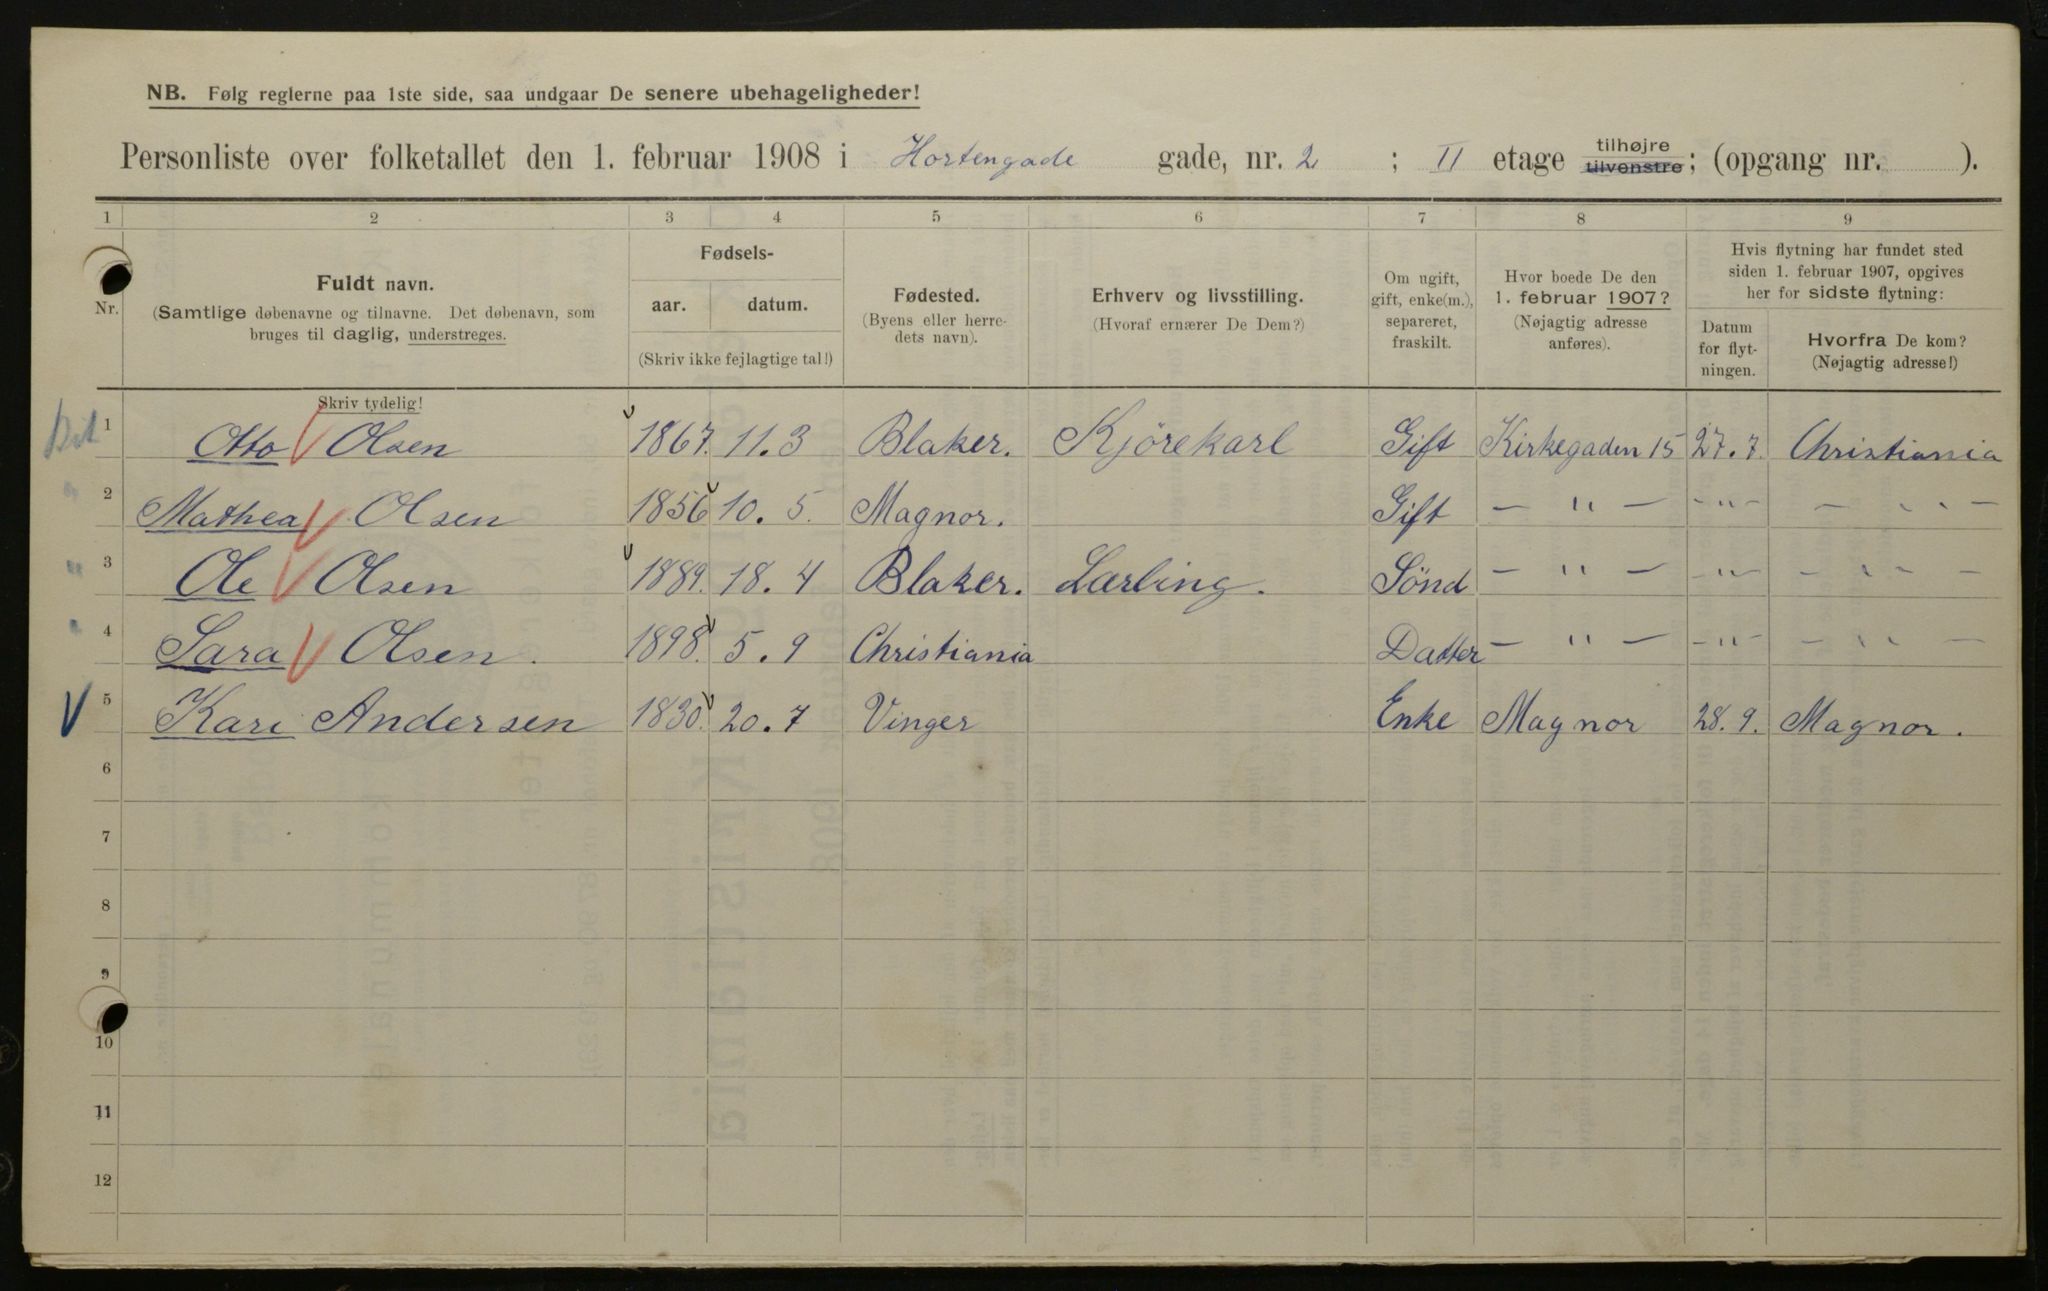 NB. Følg reglerne paa 1ste side, saa undgaar De senere ubehageligheder!
Personliste over folketallet den 1. februar 1908 i Hortengade gade, nr. 2 ; II etage tilhøjre tilvenstre; (opgang nr. ).
1 2 3 4 5 6 7 8 9
Nr.
Fuldt navn.
(Samtlige døbenavne og tilnavne. Det døbenavn, som
bruges til daglig, understreges.
Skriv tydelig!
Fødsels-
aar. datum.
(Skriv ikke fejlagtige tal!)
Fødested.
(Byens eller herre-
dets navn).
Erhverv og livsstilling.
(Hvoraf ernærer De Dem?)
Om ugift,
gift, enke(m.),
separeret,
fraskilt.
Hvor boede De den
1. februar 1907?
(Nøjagtig adresse
anføres).
Hvis flytning har fundet sted
siden 1. februar 1907, opgives
her for sidste flytning:
Datum
for flyt-
ningen.
Hvorfra De kom?
(Nøjagtig adresse!)
1 Otto Olsen 1867. 11.3 Blaker. Kjörekarl Gift Kirkegaden 15 27.7. Christiania
2 Mathea Olsen 1856 10.5. Magnor. Gift — " — -"- — " —
3 Ole Olsen 1889. 18.4 Blaker. Lærling. Sönd — " — -"- — " —
4 Sara Olsen. 1898. 5.9 Christiania Datter — " — -"- — " —
5 Kari Andersen 1830. 20.7 Vinger Enke Magnor 28.9. Magnor.
6
7
8
9
10
11
12